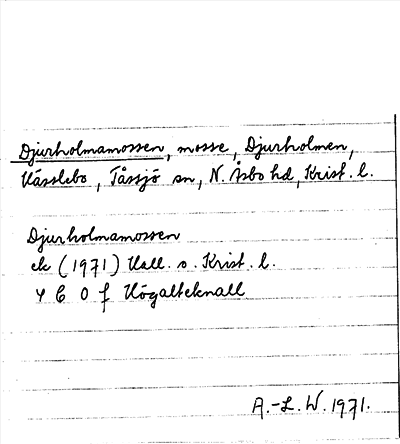 Djurholmamossen, mosse, Djurholmen,
Vässlebo, Tåssjö sn, N. Åsbo hd, Krist. l.
Djurholmamossen
ek (1971) Hall. o. Krist. l.
4 C 0 f Högalteknall
A.-L. W. 1971.